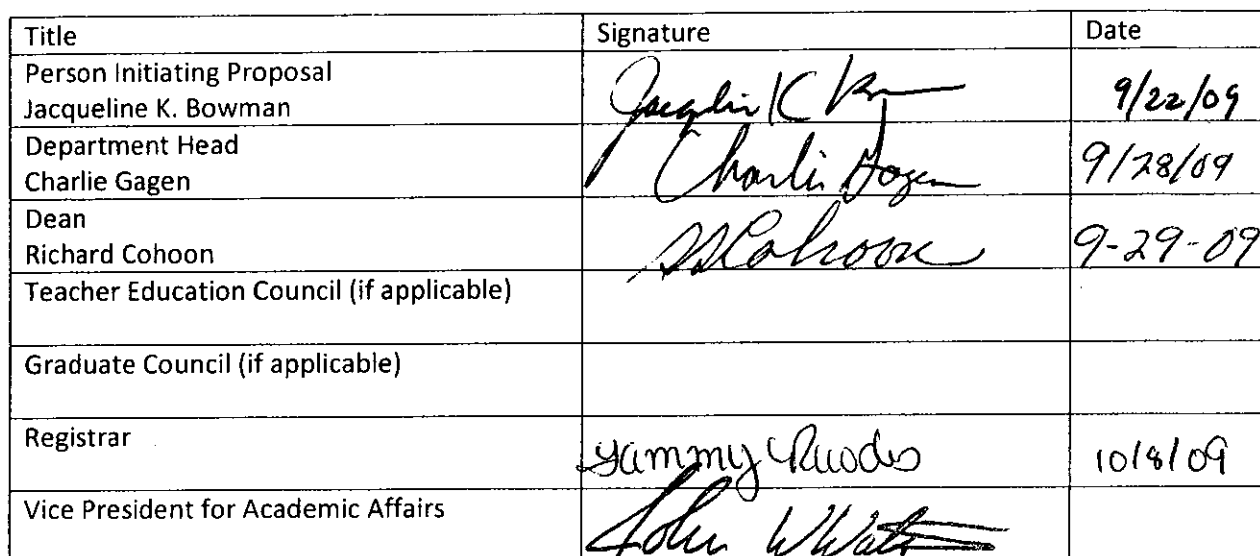 Title Signature Date
Person Initiating Proposal
Jacqueline K. Bowman Jacquelin K 9/22/09
Department Head
Charlie Gagen Charlie Gagen 9/28/09
Dean
Richard Cohoon Cohoon 9-29-09
Teacher Education Council (if applicable)
Graduate Council (if applicable)
Registrar Tammy Rhodes 10/8/09
Vice President for Academic Affairs John W Watson